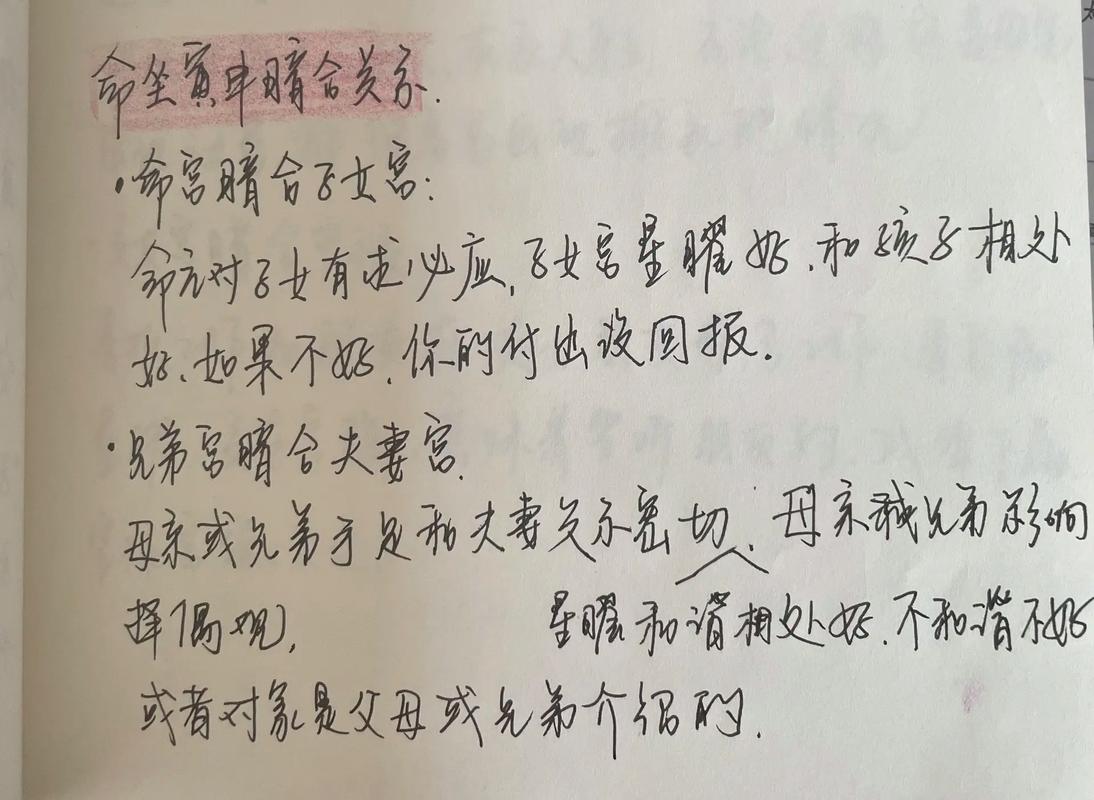 命坐寅申暗合关系.
·命宫暗合子女宫:
命主对子女有求必应,子女宫星曜好.和孩子相处
好.如果不好.你的付出没回报.
·兄弟宫暗合夫妻宫.
母亲或兄弟手足和夫妻关系密切.母亲或兄弟影响
择偶观,
星曜和谐相处好.不和谐不好
或者对象是父母或兄弟介绍的.